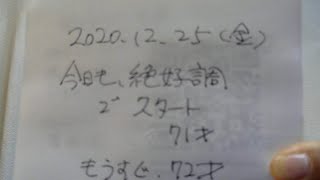 2020.12.25(金)
今日も、絶好調
で スタート
71才
もうすぐ、72才